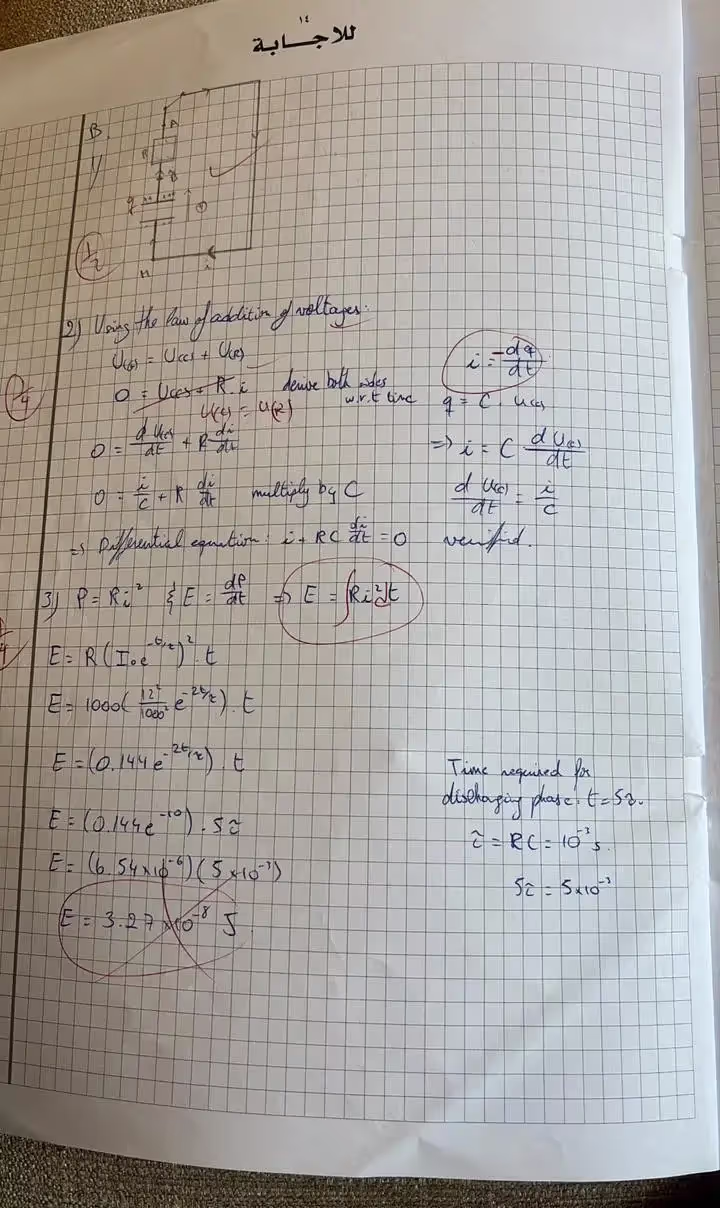 ١٤
للاجــابة
B.
1)
A
R
B
q
1/2
n
i
2) Using the law of addition of voltages:
U(G) = U(C) + U(R)
0 = U(C) + R.i derive both sides w.r.t time
U(C) = U(R)
0 = dU(C)/dt + R di/dt
0 = i/C + R di/dt multiply by C
=> Differential equation: i + RC di/dt = 0 verified.
i = -dq/dt
q = C . U(C)
=> i = C dU(C)/dt
dU(C)/dt = i/C
3) P = Ri² & E = dP/dt => E = ∫Ri²dt
E = R(I₀e^-t/τ)² . t
E = 1000(12²/1000² e^-2t/τ) . t
E = (0.144e^-2t/τ) . t
E = (0.144e^-10) . 5τ
E = (6.54×10^-6)(5×10^-3)
E = 3.27×10^-8 J
Time required for
discharging phase: t = 5τ.
τ = RC = 10^-3 s.
5τ = 5×10^-3